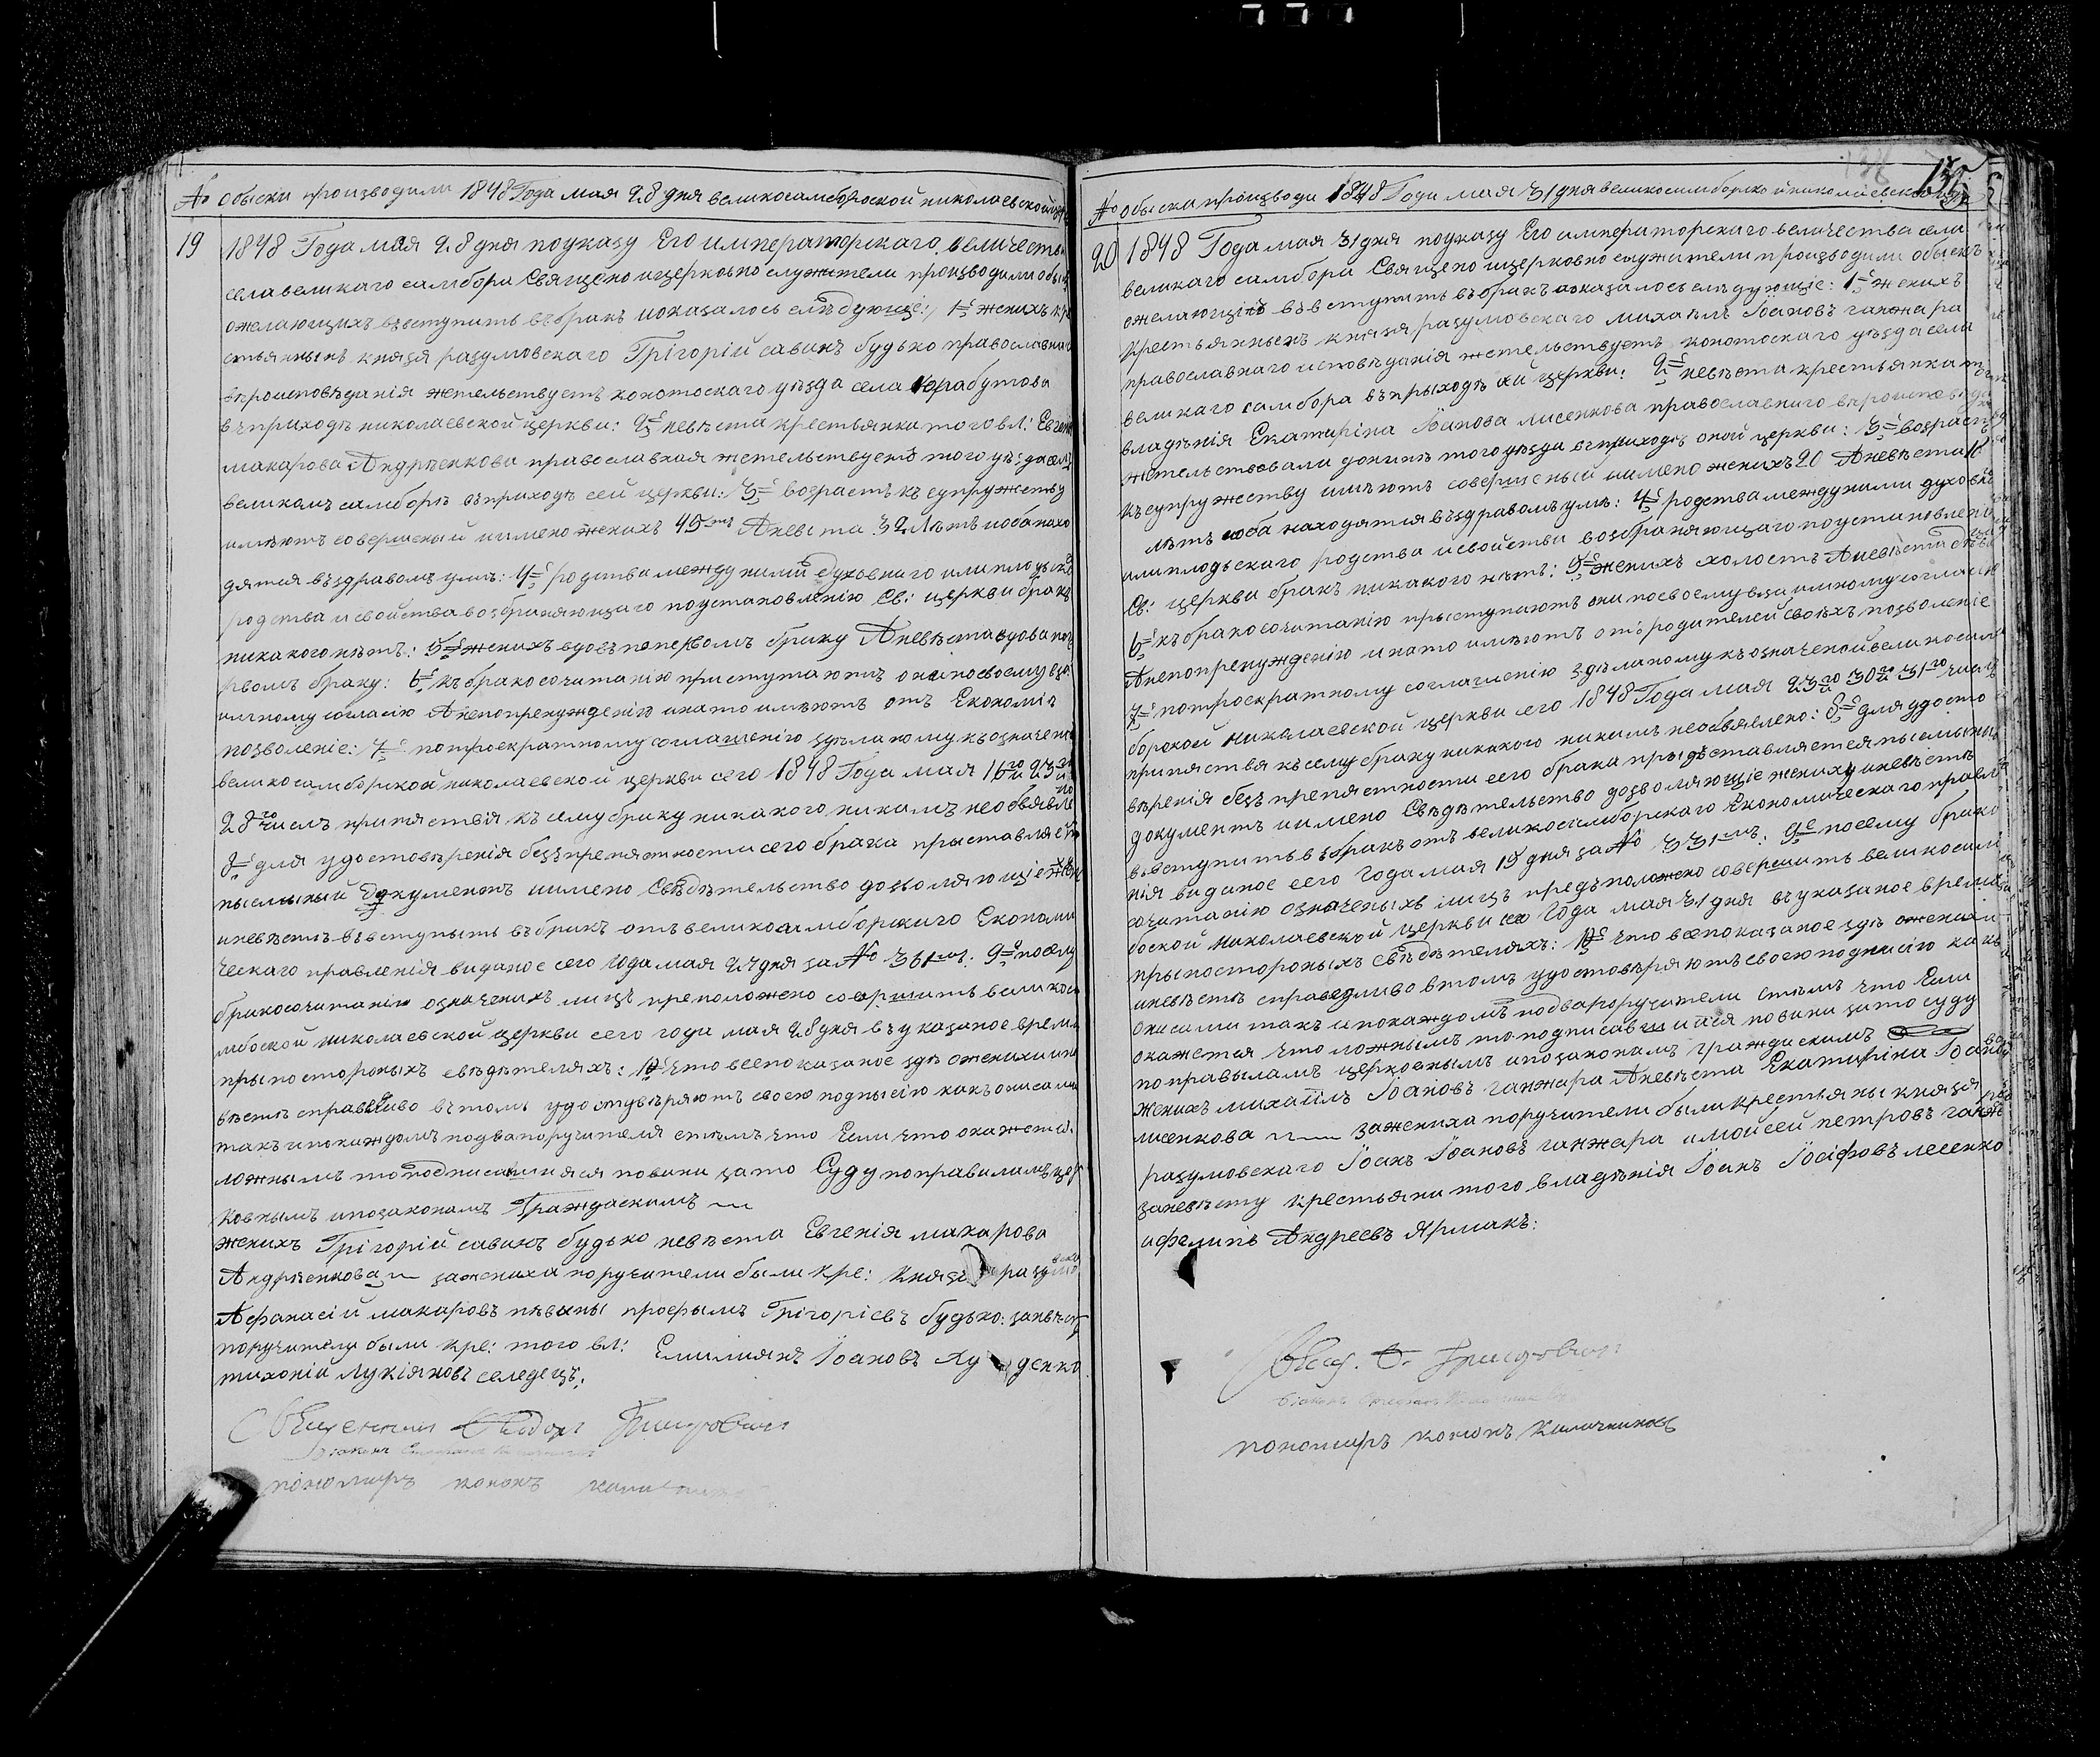 № Обыски производили 1848 Года мая 28 дня великосамбороской николаевской
19 1848 Года мая 28 дня поуказу Его императорского величества
села великаго самбора Священо ицерковно служители производили обы
ожелающихъ въвступить въбракъ иоказалось слѣдующіе: 1е женихъ кре
стьянынъ князя разумовскаго Грігорій савинъ будько православнаго
вѣроисповѣданія жетельствуетъ конотоскаго уѣзда села карабутова
въприходѣ николаевской церкви: 2е невѣста крестьянка того вл: Евгенія
макарова Андрѣенкова православная жетельствуетъ того уѣ: да села
великомъ самборѣ въприходѣ сей церкви: 3е возрастъ къ супружеству
имѣютъ совершеный имено женихъ 45 Аневѣста 32 Лѣтъ иоба нахо
дятся въздравомъ умѣ: 4е родства между ними Духовнаго или плодьскаго
родства исвойства возбраняющаго поустановленію Св: церкви бракъ
никакого нѣтъ: 5е женихъ вдовъ поперьвомъ браку Аневѣста вдова попе
рвомъ браку: 6е къбракосочитанію приступаютъ они посвоему вза
имному согласію Анепопренужденію инато имѣютъ отъ Економіи
позволеніе: 7е потроекратному соглашенію здѣланому къозначеной
великосамборской николаевской церкви сего 1848 Года мая 16го 23го и
28го числъ припятствія къ сему браку никакого никимъ необъявлено
8е для удостовѣренія безъпрепятности сего брака приставляется
пысьмный Документъ имено Свѣдѣтельство дозволяющіе жениху
иневѣстѣ въвступыть въбракъ отъ великосамборскаго Економи
ческаго правленія виданое сего года мая 24 дня за № 361мъ. 9е посему
бракосочитанію означеныхъ лицъ преположено совершить великоса
мбоской николаевской церкви сего года мая 28 дня въуказаное время
прыпостороныхъ свѣдѣтеляхъ: 10е Что всепоказаное здѣ оженихи ине
вѣстѣ справедливо вътомъ удостувѣряютъ своею подпысію какъонисами
такъ ипокаждомъ подвапоручителя стѣмъ что Если что окажется
ложнымъ топодписавшияся повини зато Суду поправиламъ цер
ковнымъ ипозаконамъ Граждаскимъ
женихъ Грігорій савинъ будько невѣста Евгенія макарова
Андрѣенкова зажениха поручители были кре: князя разумо
Афанасій макаровъ пѣвины профымъ Грігоріевъ будько: заневѣсту
поручители были кре: того вл: Емилиянъ Іоановъ денко
тихоній Лукіяновъ селедецъ.
Священникъ Феодоръ Григоровичъ
пономарь кононъ
135
№ Обыски производи 1848 Года мая 31 дня великосамборско йниколаевской
20 1848 Года мая 31 дня поуказу Его императорскаго величества села
великаго самбора Священо ицерковно служители производили обыскъ
ожелающихъ въвступить въбракъ аоказалось слѣдующіе: 1е женихъ
крестьянинъ князя разумовскаго михаилъ Іоановъ ганжара
православнаго исповѣданія жетельствуетъ конотоскаго уѣзда села
великаго самбора въпрыходѣ сей церкви: 2е невѣста крестьянка тогожъ
владѣнія Екатиріна Іоанова лисенкова православнаго вѣроисповѣда
жетельствовали донинѣ того уѣзда въприходѣ оной церкви: 3е возрастъ
къ супружеству имѣютъ совершеный имено женихъ 20 Аневѣста
лѣтъ иоба находятся въздравомъ умѣ: 4е родства между ними духовнаго
или плодьскаго родства исвойства возбраняющаго поустановленію
Св: церкви бракъ никакого нѣтъ: 5е женихъ холостъ Аневѣста дѣвица
6е къбракосочитанію прыступаютъ они посвоему взаимному согласію
Анепопренужденію инато имѣютъ отъродителей своихъ позволеніе
7е потроекратному соглашенію здѣланому къозначеной великосам
борской николаевской церкви сего 1848 Года мая 23го 30го и 31го числъ
припятствя къ сему браку никакого никимъ необъявлено: 8е для удосто
вѣренія безъ препятности сего брака прыдъставляется пысьмный
документъ имено Свѣдѣтельство дозволяющіе жениху иневѣстѣ
въвступить въбракъ отъ великосамборскаго Економическаго правле
нія виданое сего Года мая 19 дня за № 331мъ: 9е посему брако
сочитанію означеныхъ лицъ предъположено совершить великосам
боской николаевской церкви сего Года мая 31 дня въуказаное время
прыпостороныхъ свѣдѣтеляхъ: 10е Что всепоказаное здѣ оженихи
иневѣстѣ справедливо втомъ удостовѣряютъ своею подпысію какъ
онисами такъ ипокаждомъ подвапоручители стѣмъ что Если
окажется что ложнымъ топодписавшийся повини зато суду
поправыламъ церковнымъ ипозаконамъ граждаскимъ
Женихъ михаилъ Іоановъ ганжара Аневѣста Екатиріна Іоанова
лисенкова зажениха поручители были крестьяны князя
разумовскаго Іоанъ Іоановъ ганжара имойсей петровъ ганжа
заневѣсту крестьяни того владѣнія Іоанъ Іосіфовъ лесенко
ифелипъ Андреевъ Ярмакъ:
Свящ. Ф. Григоровичъ
пономарь кононъ